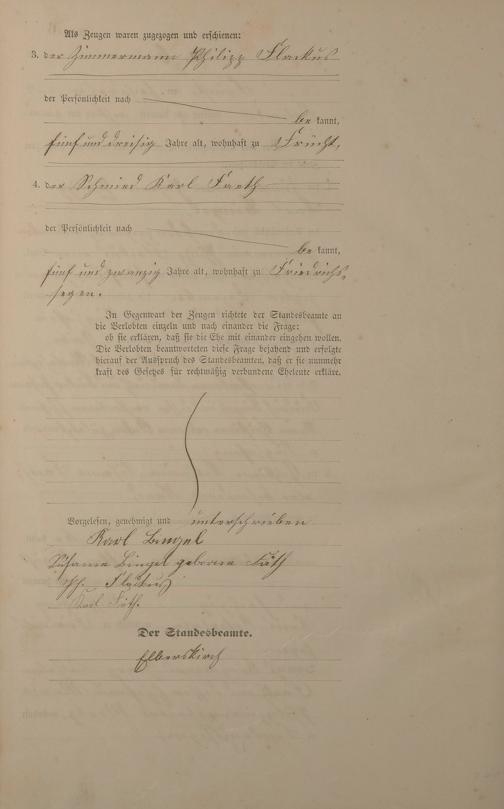 Als Zeugen waren zugezogen und erschienen:
3. der Zimmermann Philipp Flackus
der Persönlichkeit nach
be kannt,
fünf und dreißig Jahre alt, wohnhaft zu Frücht,
4. der Schmied Karl Faeth
der Persönlichkeit nach
be kannt,
fünf und zwanzig Jahre alt, wohnhaft zu Friedrichs-
segen.
In Gegenwart der Zeugen richtete der Standesbeamte an
die Verlobten einzeln und nach einander die Frage:
ob sie erklären, daß sie die Ehe mit einander eingehen wollen.
Die Verlobten beantworteten diese Frage bejahend und erfolgte
hierauf der Ausspruch des Standesbeamten, daß er sie nunmehr
kraft des Gesetzes für rechtmäßig verbundene Eheleute erkläre.
Vorgelesen, genehmigt und unterschrieben
Karl Bingel
Susanna Bingel geborene Fäth
Ph. Flackus
Karl Fäth.
Der Standesbeamte.
Elberskirch